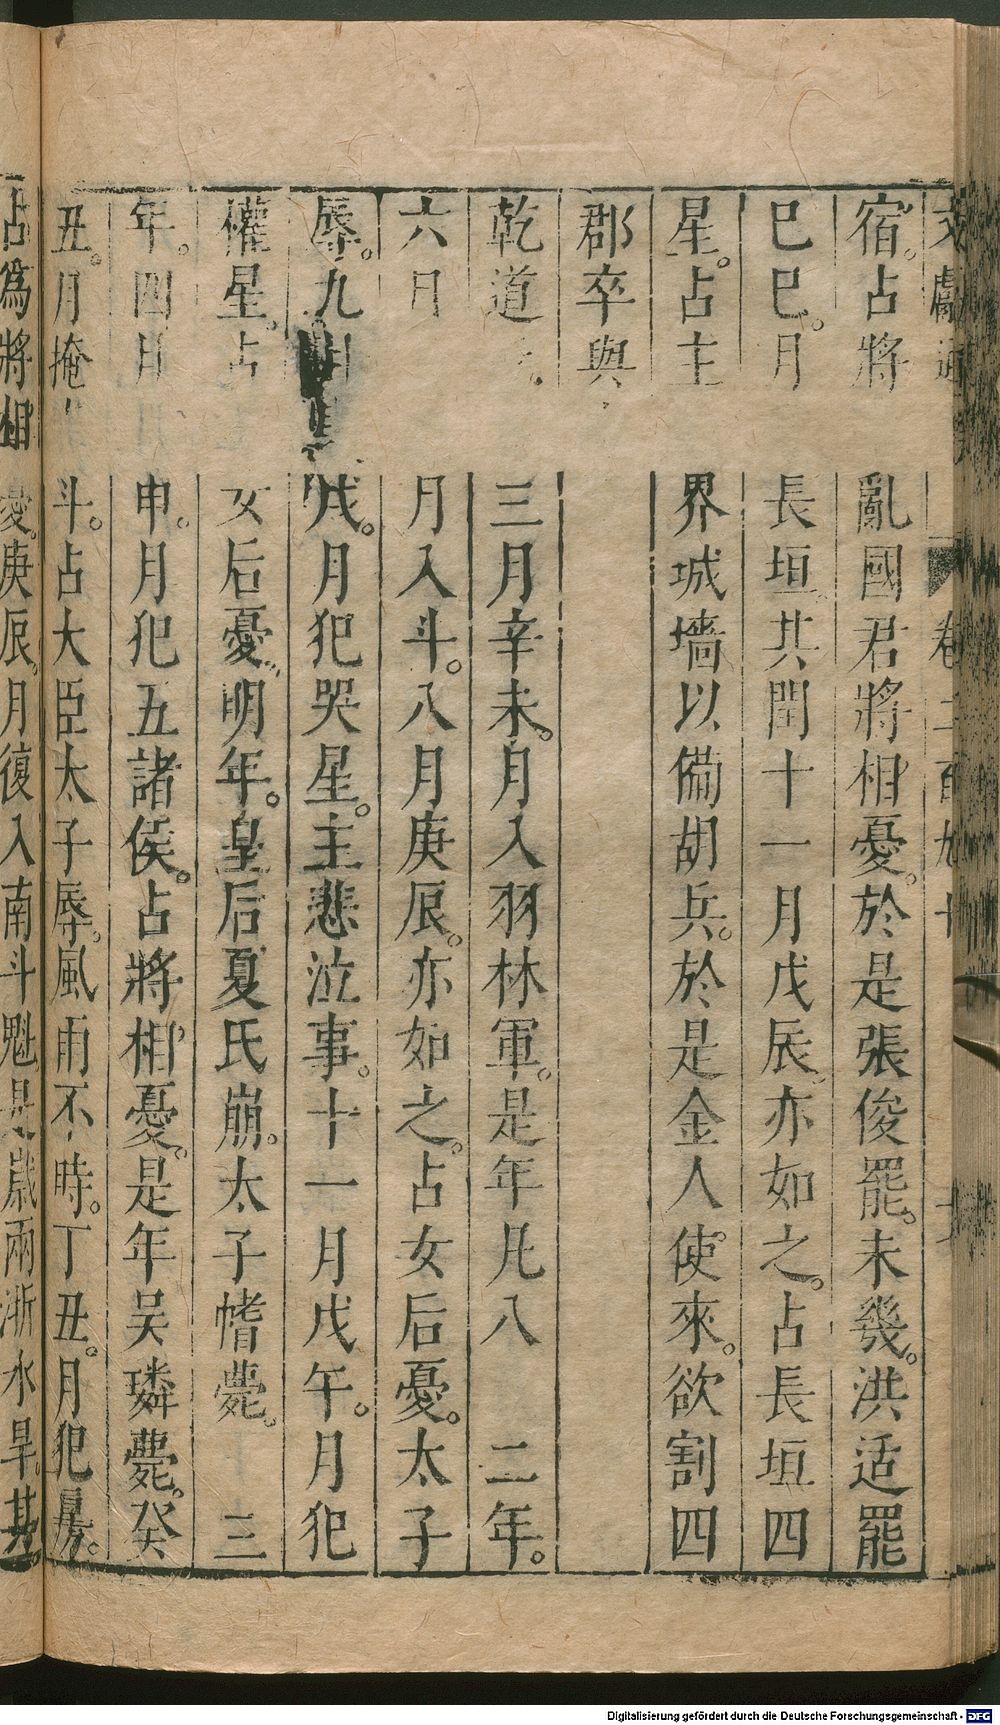 宿。占將亂國君將相憂。於是張俊罷。未幾。洪适罷
巳巳。月長垣。共閏十一月戊辰。亦如之。占長垣四
星。占主界城墻以備胡兵。於是金人使來。欲割四
郡卒與
乾道三月辛未。月入羽林軍。是年凡八 二年。
六月月入斗。八月庚辰。亦如之。占女后憂。太子
辱。九戌。月犯哭星。主悲泣事。十一月戊午。月犯
權星。占女后憂。明年。皇后夏氏崩。太子愭薨。 三
年。四月申。月犯五諸侯。占將相憂。是年吳璘薨。癸
丑。月掩斗。占大臣太子辱。風雨不時。丁丑。月犯房。
占爲將相憂。庚辰。月復入南斗魁。是歲兩浙水旱。其
Digitalisierung gefördert durch die Deutsche Forschungsgemeinschaft - DFG